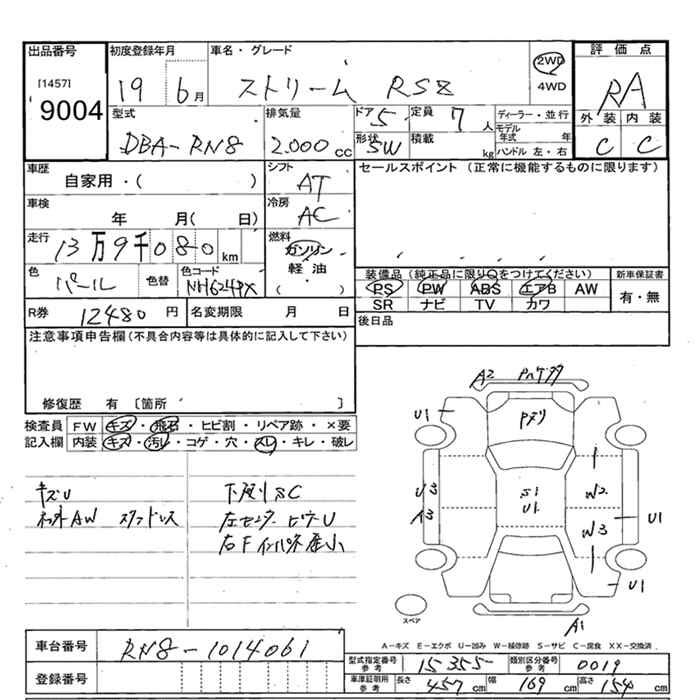 出品番号
[1457]
9004
初度登録年月
19 6月
車名・グレード
ストリーム RSZ
2WD
4WD
評価点
RA
外装 内装
C C
型式
DBA-RN8
排気量
2.000 cc
ドア 5
定員 7 人
形状 SW
積載 kg
ディーラー・並行
モデル年式 年
ハンドル 左・右
車歴
自家用・( )
シフト
AT
車検
年 月( 日)
冷房
AC
走行
13万9千080 km
燃料
ガソリン
軽油
( )
色
パール
色替
色コード
NH624PX
R券 12480 円
名変期限 月 日
セールスポイント (正常に機能するものに限ります)
装備品 (純正品に限り○をつけてください)
PS PW ABS エアB AW
SR ナビ TV カワ
新車保証書
有・無
後日品
注意事項申告欄(不具合内容等は具体的に記入して下さい)
修復歴 有 〔箇所 〕
検査員記入欄
FW キズ・飛石・ヒビ割・リペア跡・×要
内装 キズ・汚レ・コゲ・穴・スレ・キレ・破レ
キズU
AW スタッドレス
下廻りSC
左センターピラーU
右Fインパネ
A2
U1
S1
U1
W2
W3
U1
U1
A1
スペア
A-キズ E-エクボ U-凹み W-補修跡 S-サビ C-腐食 XX-交換済
車台番号 RN8-1014061
登録番号
型式指定番号参考 15355
類別区分番号参考 0019
車庫証明用参考 長さ 457 cm 幅 169 cm 高さ 154 cm